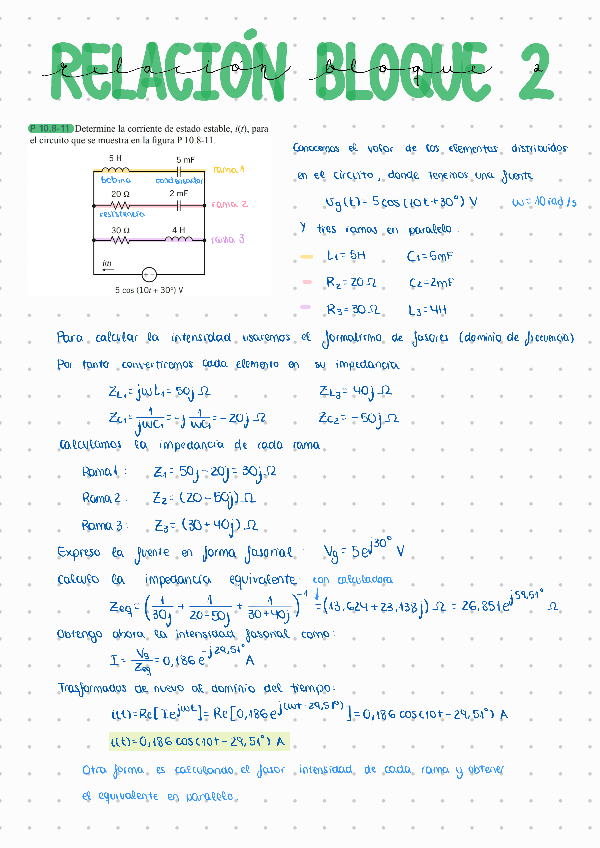 RELACIÓN BLOQUE 2
relación bloque 2
P 10.8-11 Determine la corriente de estado estable, i(t), para
el circuito que se muestra en la figura P 10.8-11.
5 H 5 mF
bobina condensador rama 1
20 Ω 2 mF
resistencia rama 2
30 Ω 4 H
rama 3
i(t)
+ −
5 cos (10t + 30°) V
Conocemos el valor de los elementos distribuidos
en el circuito, donde tenemos una fuente
Vg(t) = 5 cos (10t + 30°) V ω = 10 rad/s
Y tres ramas en paralelo:
L₁ = 5H C₁ = 5mF
R₂ = 20 Ω C₂ = 2mF
R₃ = 30 Ω L₃ = 4H
Para calcular la intensidad usaremos el formalismo de fasores (dominio de frecuencia)
Por tanto convertiremos cada elemento en su impedancia
Z_L₁ = jωL₁ = 50j Ω Z_L₃ = 40j Ω
Z_C₁ = 1/(jωC₁) = -j 1/(ωC₁) = -20j Ω Z_C₂ = -50j Ω
Calculamos la impedancia de cada rama
Rama 1: Z₁ = 50j - 20j = 30j Ω
Rama 2: Z₂ = (20 - 50j) Ω
Rama 3: Z₃ = (30 + 40j) Ω
Expreso la fuente en forma fasorial: Vg = 5e^(j30°) V
calculo la impedancia equivalente con calculadora
Zeq = (1/30j + 1/(20-50j) + 1/(30+40j))⁻¹ = (13,624 + 23,138j) Ω = 26,851e^(j59,51°) Ω
Obtengo ahora la intensidad fasorial como:
I = Vg/Zeq = 0,186 e^(-j29,51°) A
Trasformados de nuevo al dominio del tiempo:
i(t) = Re[I e^(jωt)] = Re[0,186 e^(j(ωt - 29,51°))] = 0,186 cos(10t - 29,51°) A
i(t) = 0,186 cos(10t - 29,51°) A
Otra forma es calculando el fasor intensidad de cada rama y obtener
el equivalente en paralelo.